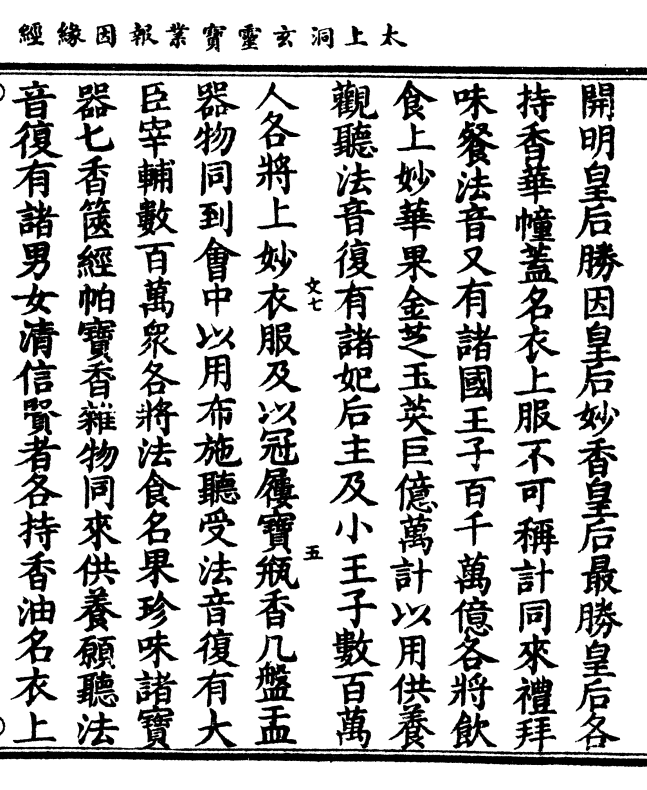 太上洞玄靈寶業報因緣經
開明皇后勝因皇后妙香皇后最勝皇后各
持香華幢蓋名衣上服不可稱計同來禮拜
味餐法音又有諸國王子百千萬億各將飲
食上妙華果金芝玉英巨億萬計以用供養
觀聽法音復有諸妃后主及小王子數百萬
文七 五
人各將上妙衣服及以冠履寶瓶香几盤盂
器物同到會中以用布施聽受法音復有大
臣宰輔數百萬眾各將法食名果珍味諸寶
器七香篋經帕寶香雜物同來供養願聽法
音復有諸男女清信賢者各持香油名衣上